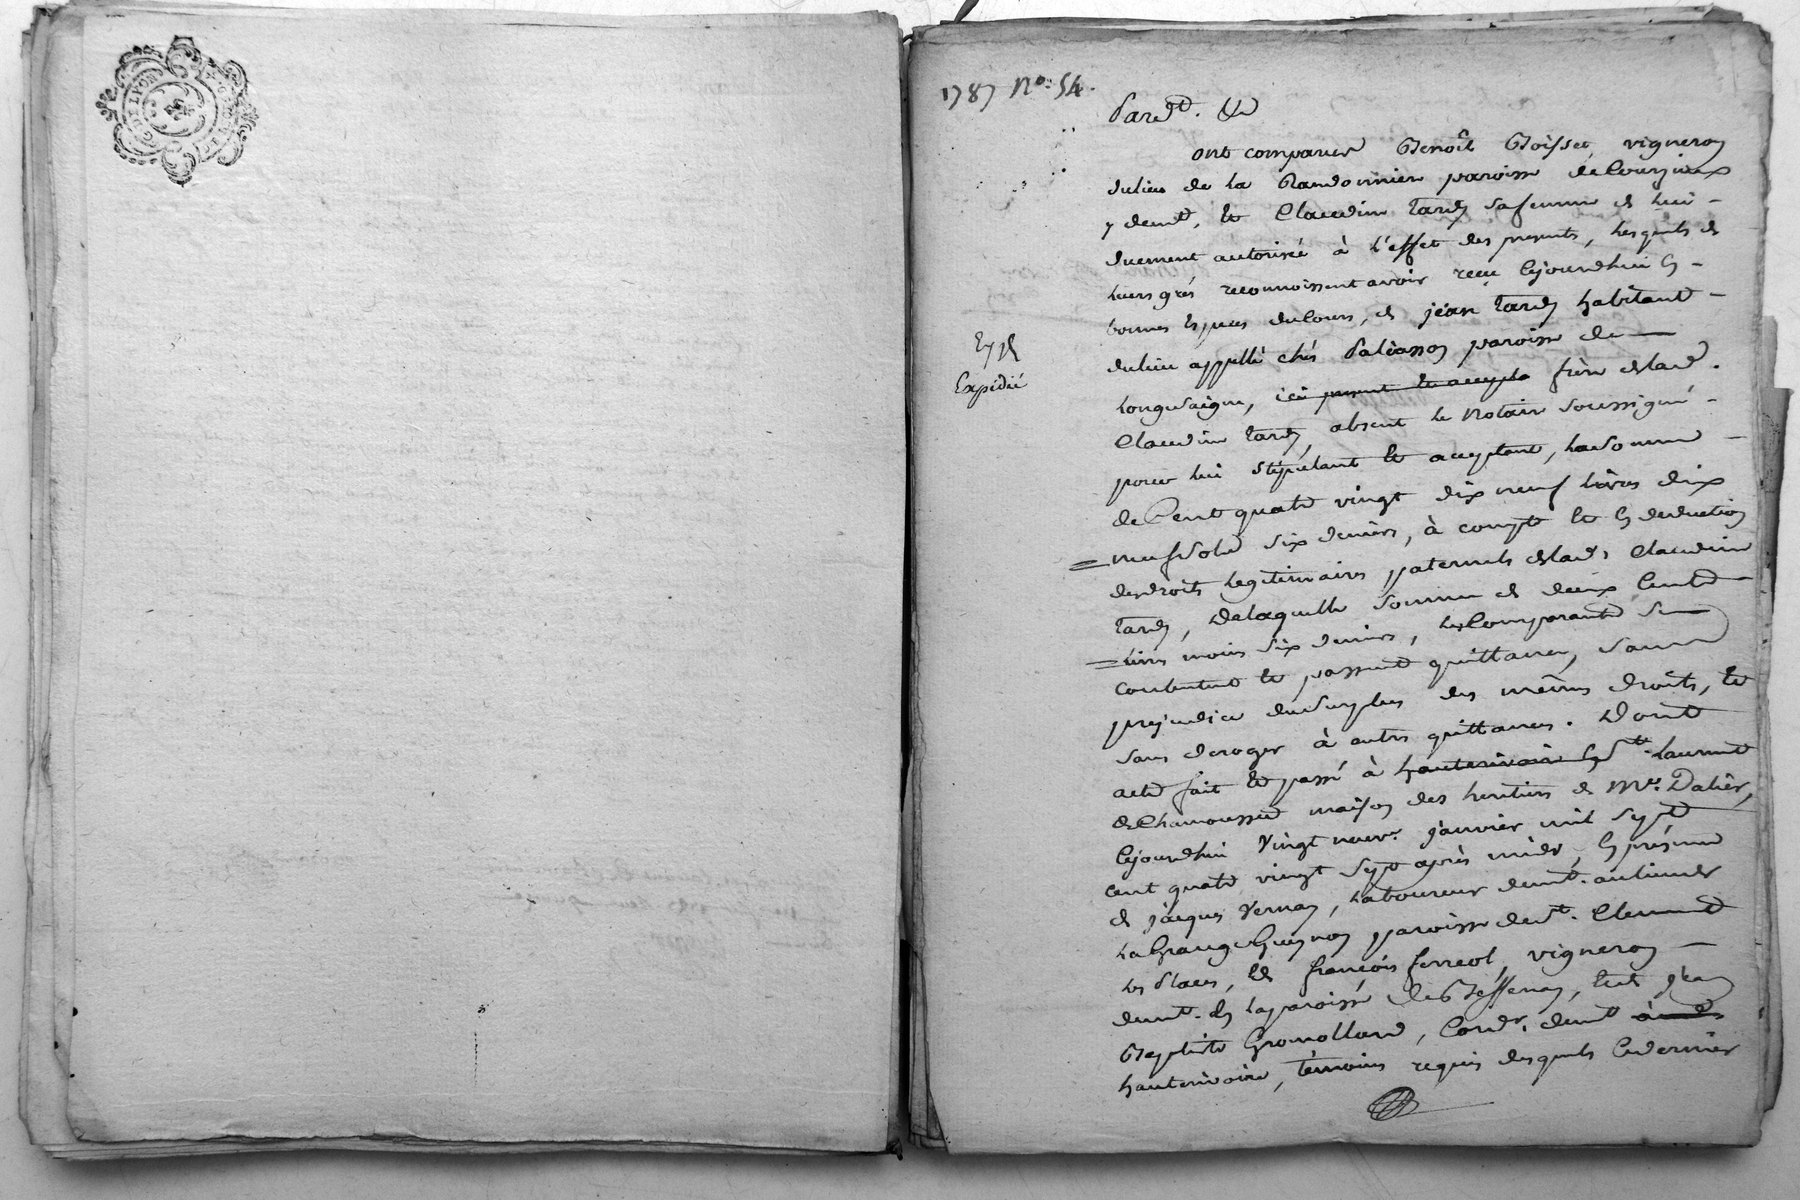 G. DE LYON
1787 No. 54.
Pardt. &c
ont comparu Benoît Boisset, vigneron
du lieu de la Randonnier paroisse de Courzieux
y demt, et Claudine Tardy sa femme de lui
duement autorisée à l'effet des presents, lesquels de
leurs grés reconnoissent avoir reçu cejourdhui en
bonnes especes du cours, de jean Tardy habitant
du lieu appellé chés Paliasson paroisse de
Longesaigne, ici present et acceptant frère de lad.
Claudine Tardy, absent le Notaire soussigné
pour lui stipulant et acceptant, la somme
de Cent quatre vingt dix neuf livres dix
neuf sols six deniers, à compte et en deduction
des droits legitimaires paternels de lad. Claudine
Tardy, de laquelle somme de deux Cents
livres moins six deniers, les Comparants se
contentent et passent quittance, sans
prejudice du surplus des mêmes droits, et
sans deroger à autres quittances. Dont
acte fait et passé à hauterivoire en St. Laurent
de Chamousset maison des heritiers de Me. Dalier,
cejourdhui vingt neuv. janvier mil sept
cent quatre vingt sept après midy, en présence
de jacques Vernay, laboureur demt. au lieu de
la Grange paroisse de St. Clement
les Places, de françois ferreol, vigneron
demt. en la paroisse de Bessenay, et de jean
Baptiste Gromolland, Cord. demt à
hauterivoire, témoins requis desquels le dernier
Expédié